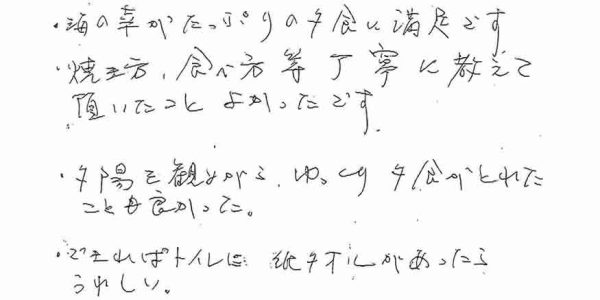 ・海の幸がたっぷりの夕食に満足です
・焼き方、食べ方等丁寧に教えて
頂いたことよかったです。
・夕陽を観ながら、ゆっくり夕食がとれた
ことも良かった。
・できればトイレに紙タオルがあったら
うれしい。